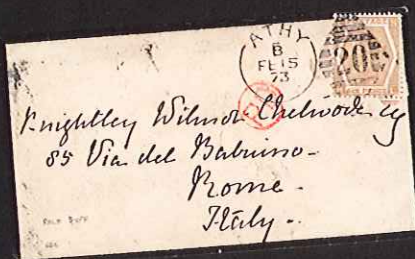 ATHY
B
FE 15
73
20
PD
Knightley Wilmot Chetwode Esq
85 Via del Babuino -
Rome -
Italy -
PALE BUFF